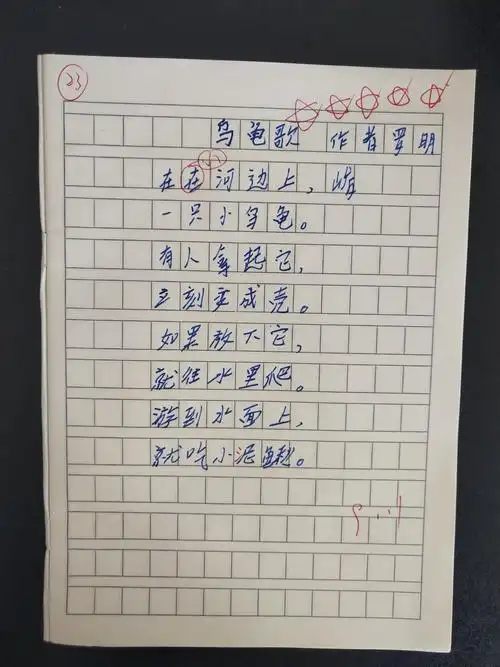 23
乌龟歌 作者 明
在在河边上,
一只小乌龟。
有人拿起它,
立刻变成壳。
如果放下它,
就往水里爬。
游到水面上,
就吃小泥鳅。
9.11